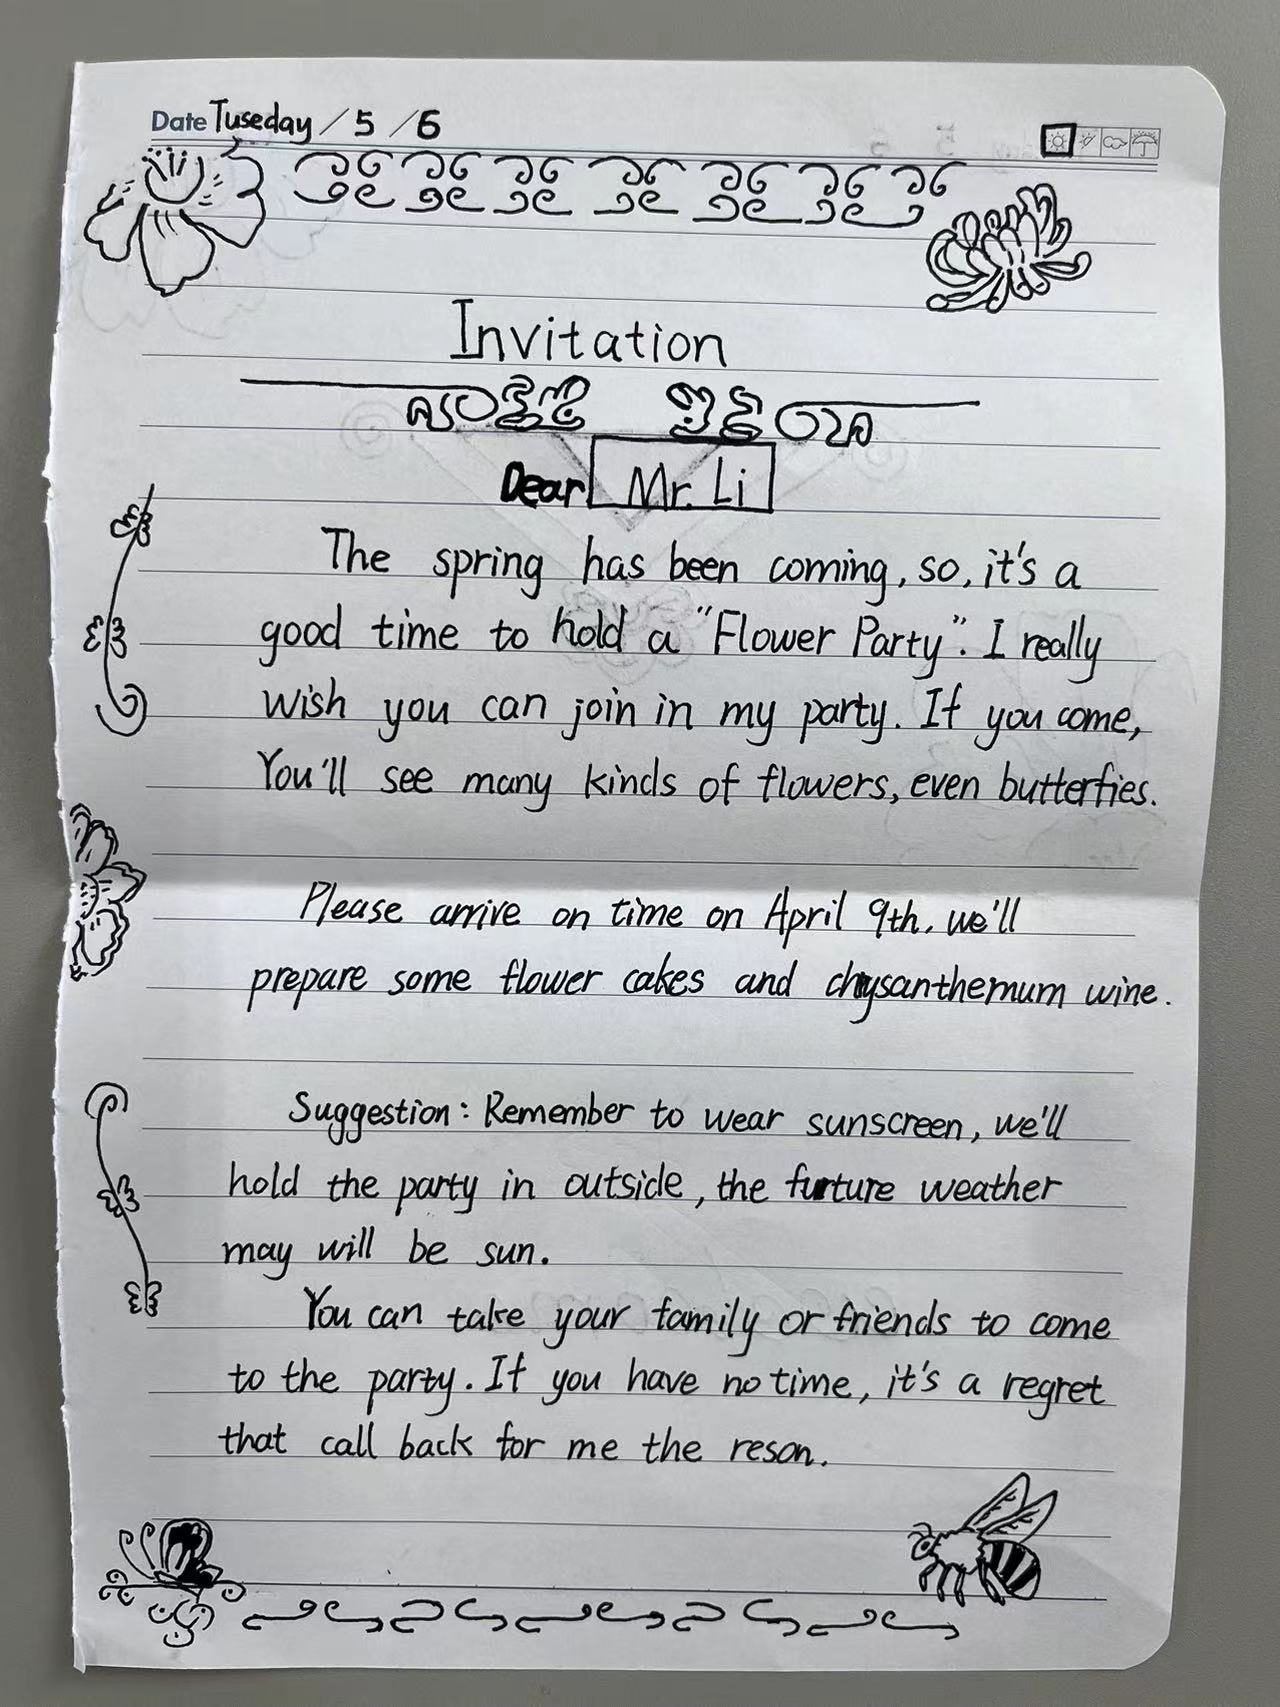 Date Tuseday / 5 / 6
Invitation
Dear Mr. Li
The spring has been coming, so, it's a
good time to hold a "Flower Party". I really
wish you can join in my party. If you come,
You'll see many kinds of flowers, even butterfies.
Please arrive on time on April 9th. we'll
prepare some flower cakes and chrysanthemum wine.
Suggestion: Remember to wear sunscreen, we'll
hold the party in outside, the furture weather
may will be sun.
You can take your family or friends to come
to the party. If you have no time, it's a regret
that call back for me the reson.